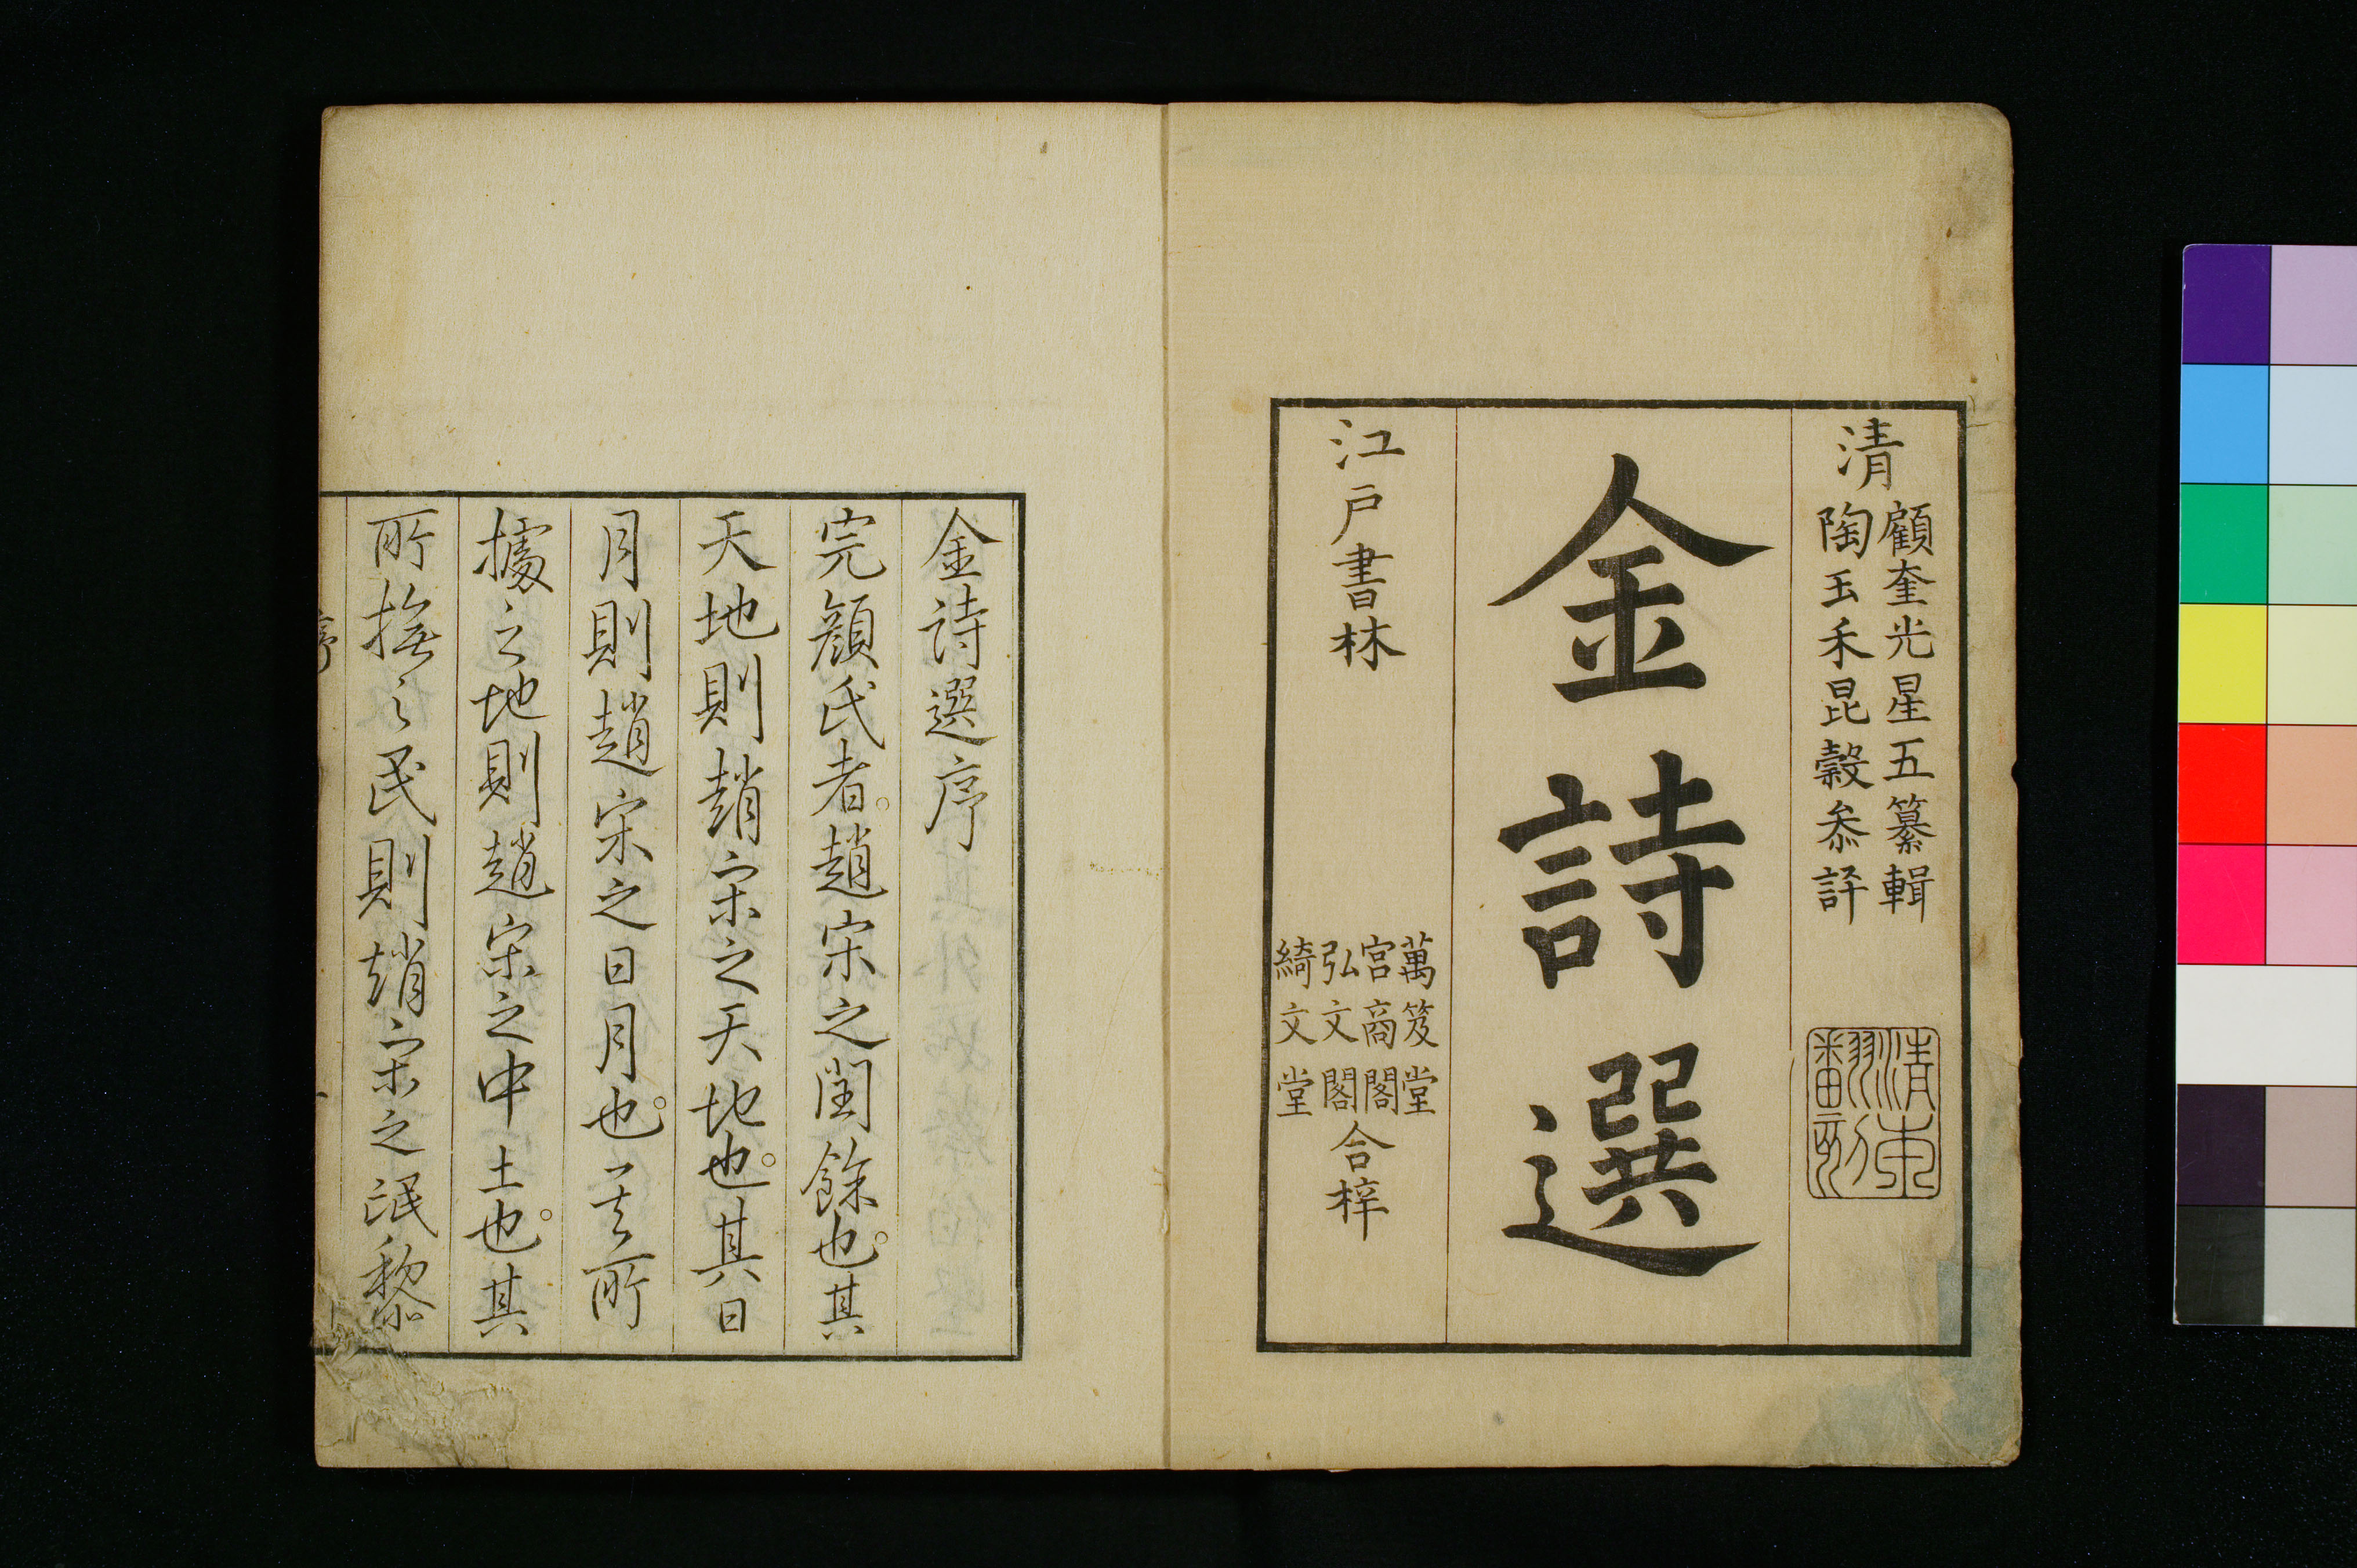 清
顧奎光星五纂輯
陶玉禾昆穀叅評
清東
翻刻
金詩選
江戸書林
萬笈堂
宮商閣
弘文閣
綺文堂
合梓
金詩選序
完顔氏者。趙宋之閏餘也。其
天地則趙宋之天地也。其日
月則趙宋之日月也。其所
據之地則趙宋之中土也。其
所撫之民則趙宋之氓黎
序